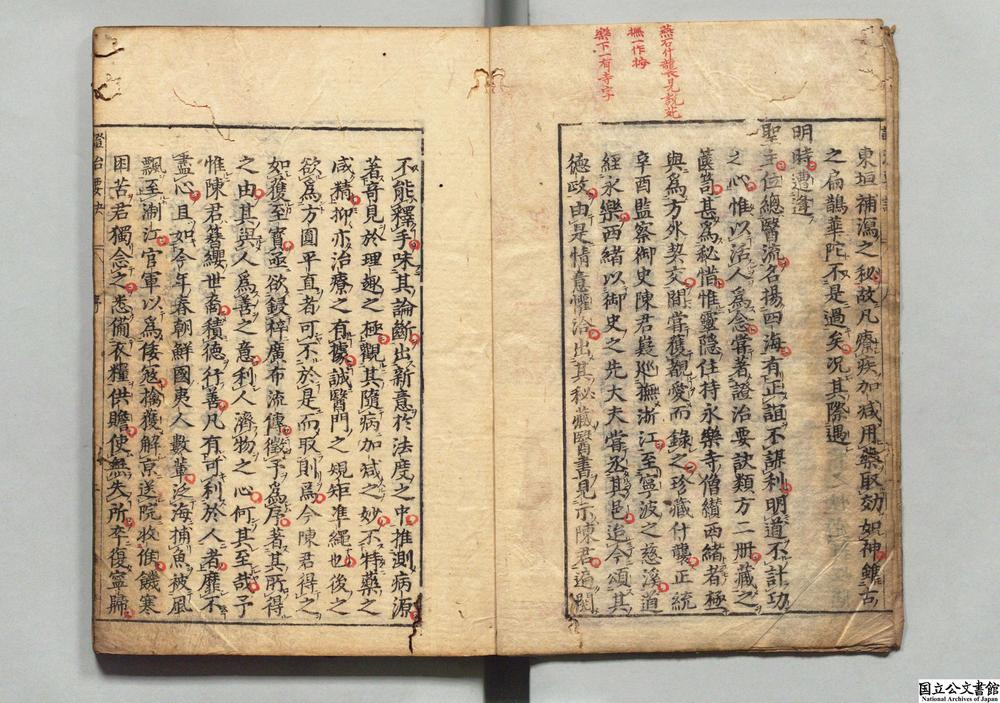 燕石什襲衣見説苑
撫一作按
樂下一有寺字
東垣補瀉之秘故凡療疾加减用藥取効如神雖古
之扁鵲華陀不是過矣况其際遇
明時遭逢
聖主位總醫流名揚四海有正誼不謀利明道不計功
之心惟以活人為念嘗著證治要訣類方二册藏之
篋笥甚爲秘惜惟靈隱住持永樂寺僧纘西緒者極
與爲方外契交間嘗獲觀愛而錄之珍藏什襲正統
辛酉監察御史陳君嶷廵撫浙江至寧波之慈溪道
經永樂西緒以御史之先大夫嘗丞其邑追今頌其
德政由是情意懽洽出其秘藏醫書見示陳君適閱
不能釋手味其論斷出新意於法度之中推測病源
著竒見於理趣之極觀其隨病加减之妙不特藥之
咸精抑亦治療之有據誠醫門之規矩準繩也後之
欲爲方圓平直者可不於是而取則焉今陳君得之
如獲至寳亟欲鋟梓廣布流傳徵予爲序著其所得
之由其與人爲善之意利人濟物之心何其至哉予
惟陳君簪纓世裔積德行善凡有可利於人者靡不
盡心且如今年春朝鮮國夷人數軰泛海捕魚被風
飄至淛江官軍以爲倭冦擒獲解京送院收候饑寒
困苦君獨念之悉備衣糧供贍使無失所卒復寧歸
證治要決
序
国立公文書館
National Archives of Japan